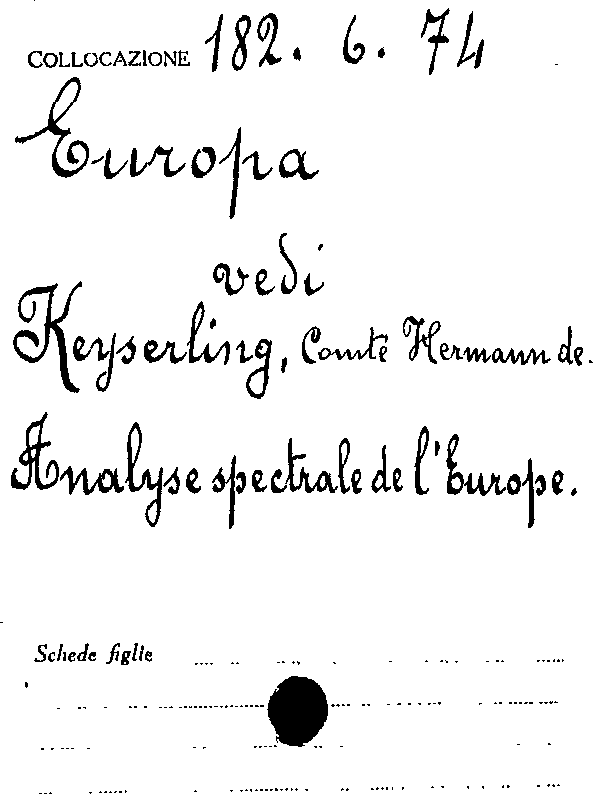 COLLOCAZIONE 182. 6. 74
Europa
vedi
Keyserling, Comte Hermann de.
Analyse spectrale de l'Europe.
Schede figlie